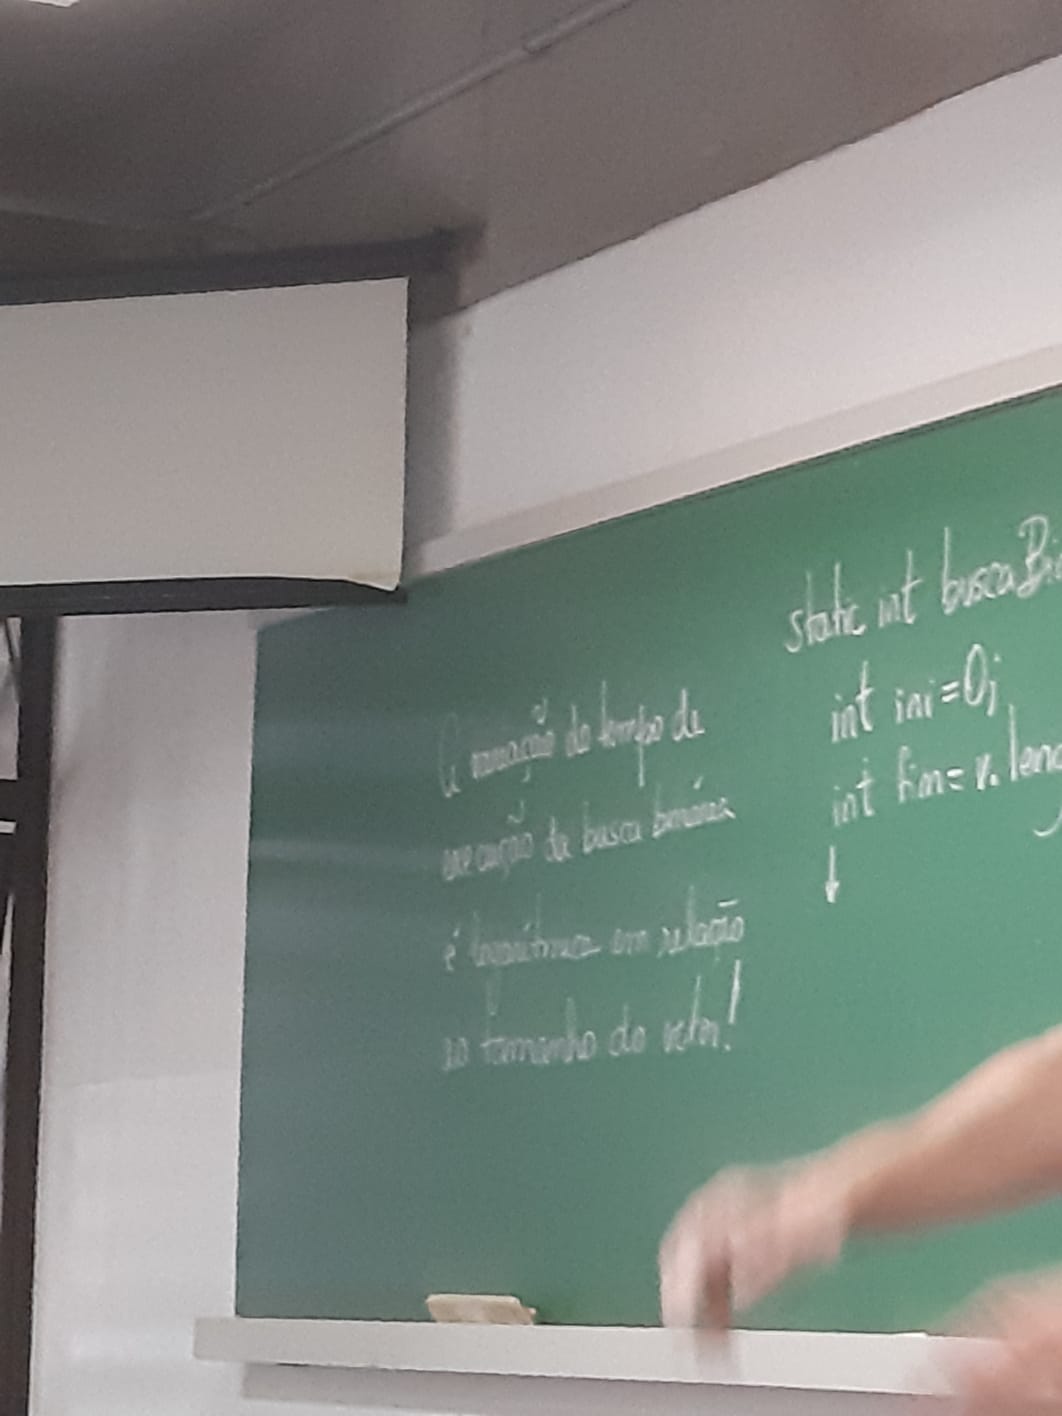 A variação do tempo de
execução da busca binária
é logarítmica em relação
ao tamanho do vetor!
static int buscaBi
int ini=0;
int fim= v.leng